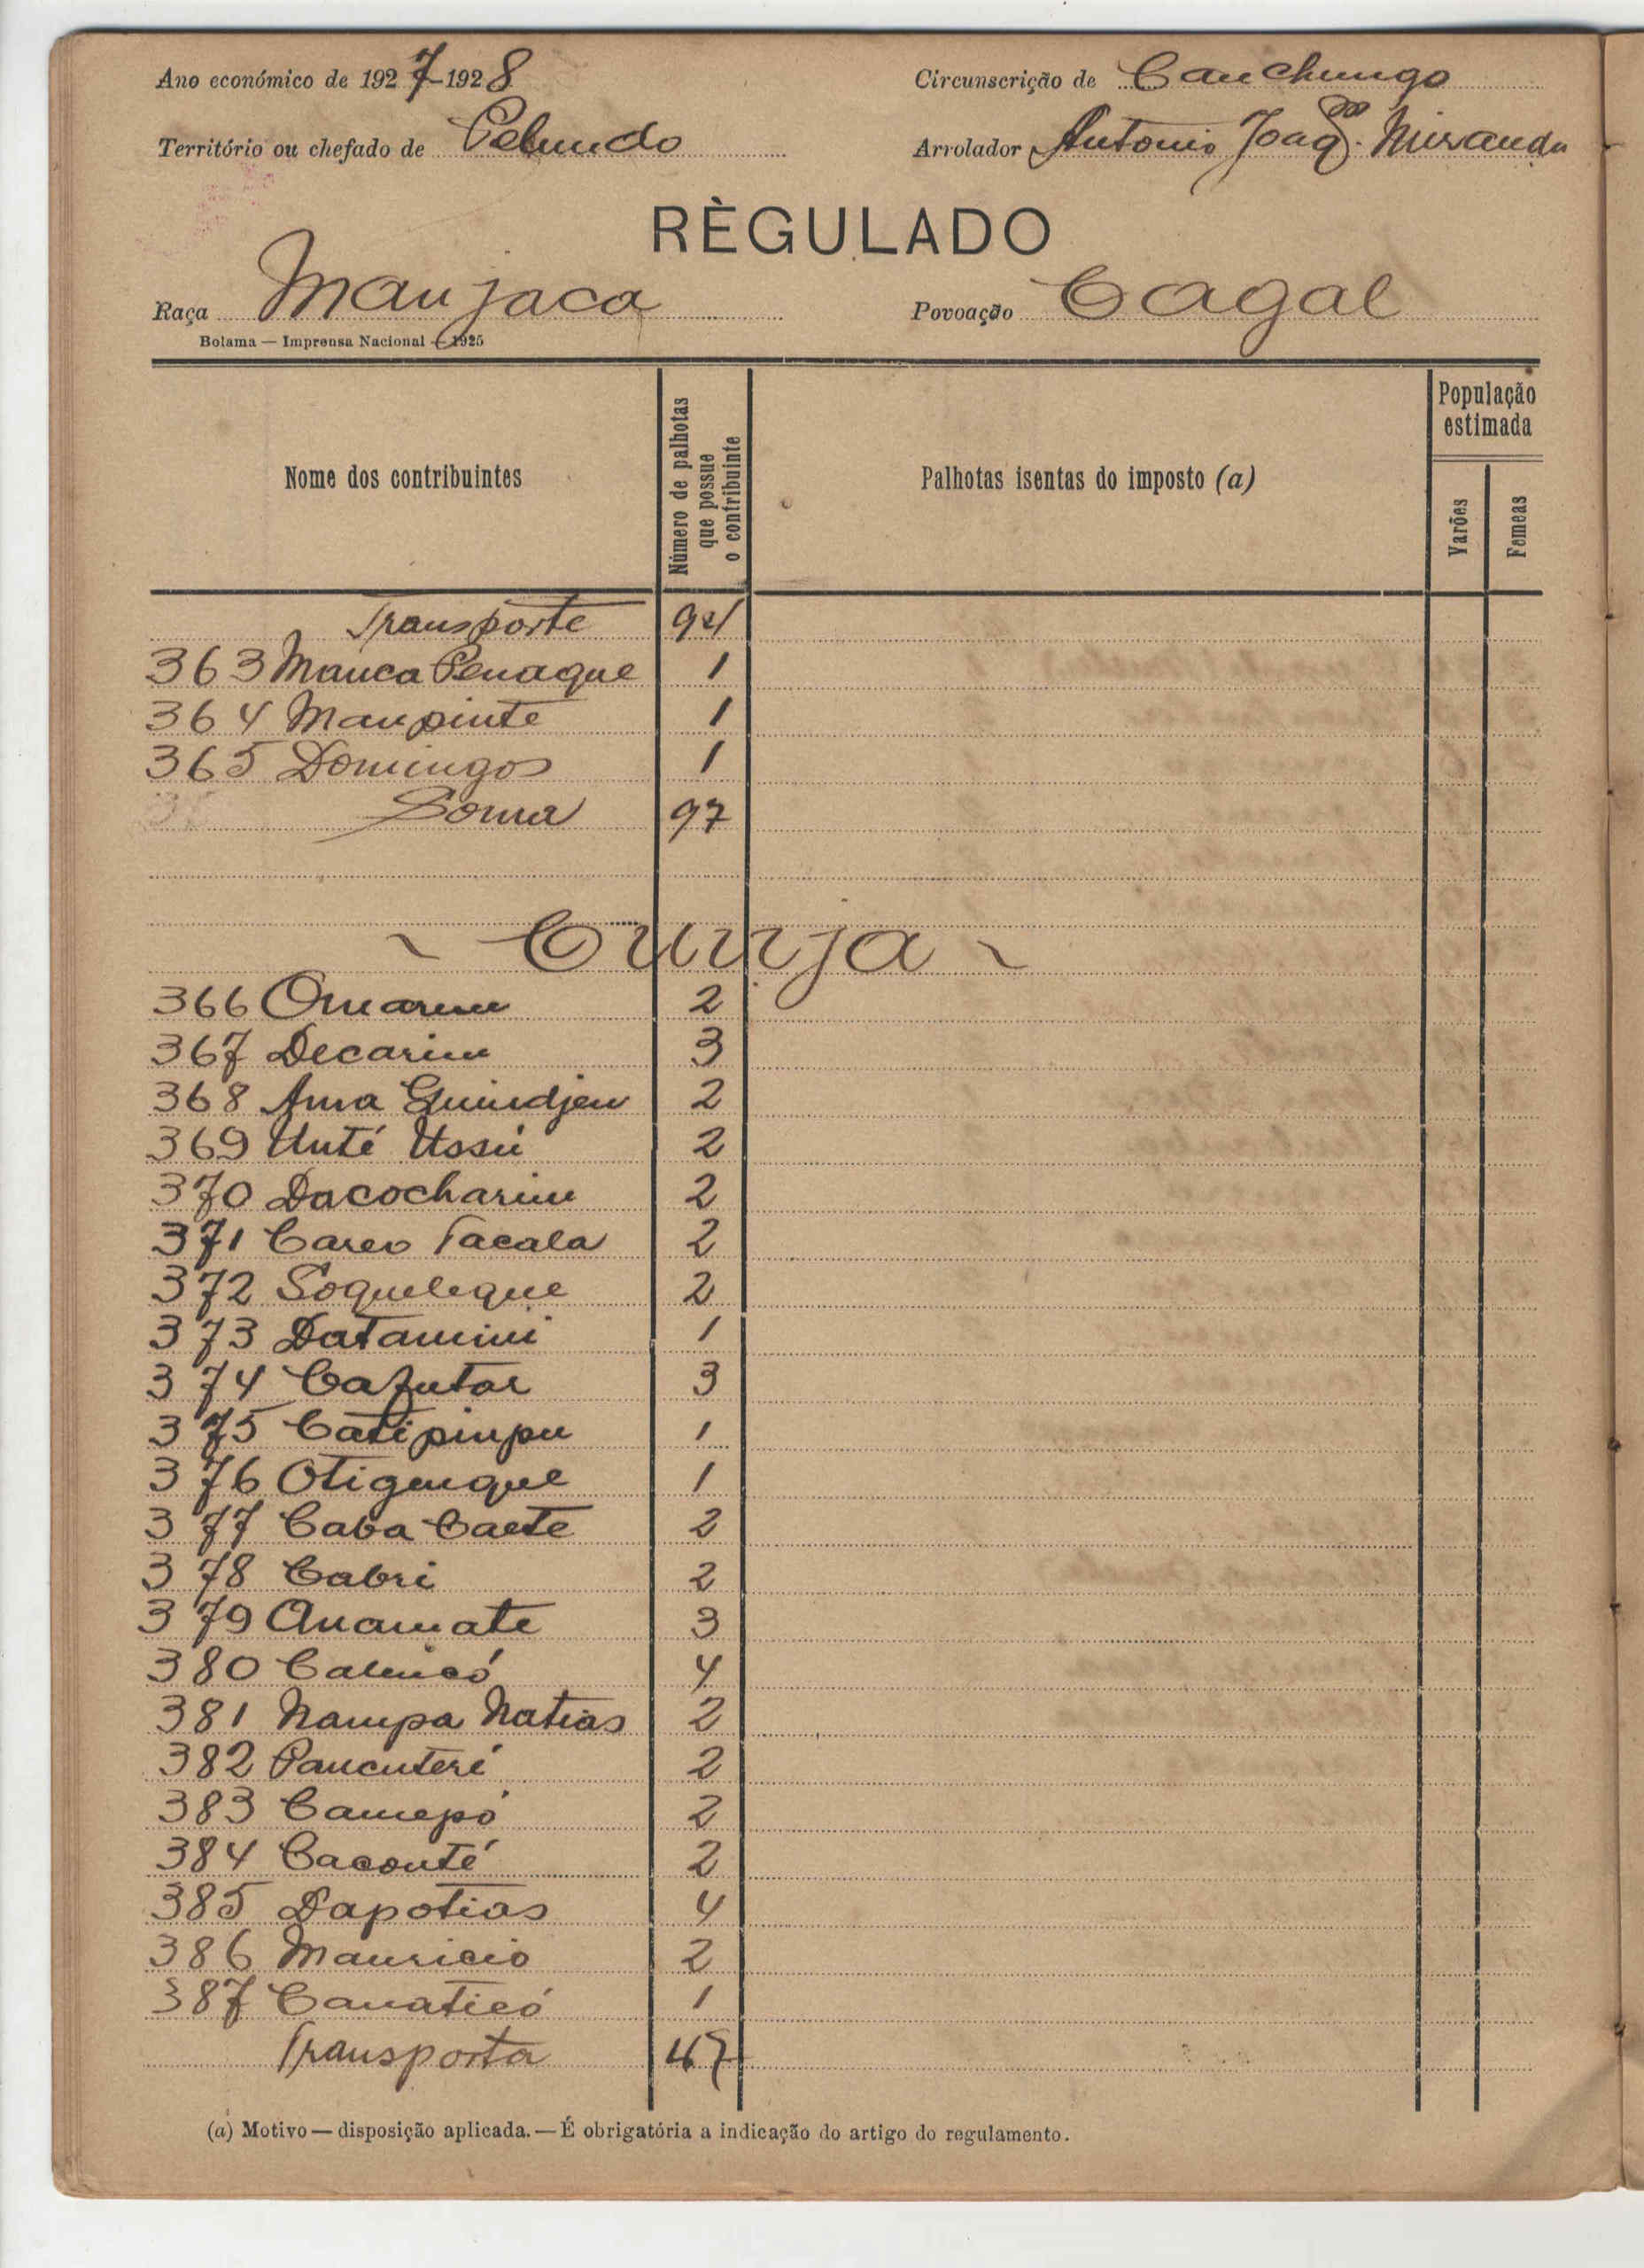 Ano económico de 1927-1928
Circunscrição de Canchungo
Território ou chefado de Pelundo
Arrolador Antonio Joaqm. Miranda
RÈGULADO
Raça Manjaca
Povoação Cagal
Bolama — Imprensa Nacional — 1925
Nome dos contribuintes
Número de palhotas que possue o contribuinte
Palhotas isentas do imposto (a)
População estimada
Varões
Femeas
Transporte 94
363 Manca Penaque 1
364 Manpinte 1
365 Domingos 1
Soma 97
~ Cunja ~
366 Omarim 2
367 Decarim 3
368 Ama Guindjen 2
369 Unté Ussú 2
370 Dacocharim 2
371 Careo Tacala 2
372 Soqueleque 2
373 Datamini 1
374 Cafutar 3
375 Catipinpu 1
376 Otigenque 1
377 Caba Caete 2
378 Cabri 2
379 Anamate 3
380 4
381 Nampa Natias 2
382 Pancuteré 2
383 Camepó 2
384 Caconté 2
385 Dapotias 4
386 Mauricio 2
387 Canaticó 1
Transporta 47
(a) Motivo — disposição aplicada. — É obrigatória a indicação do artigo do regulamento.